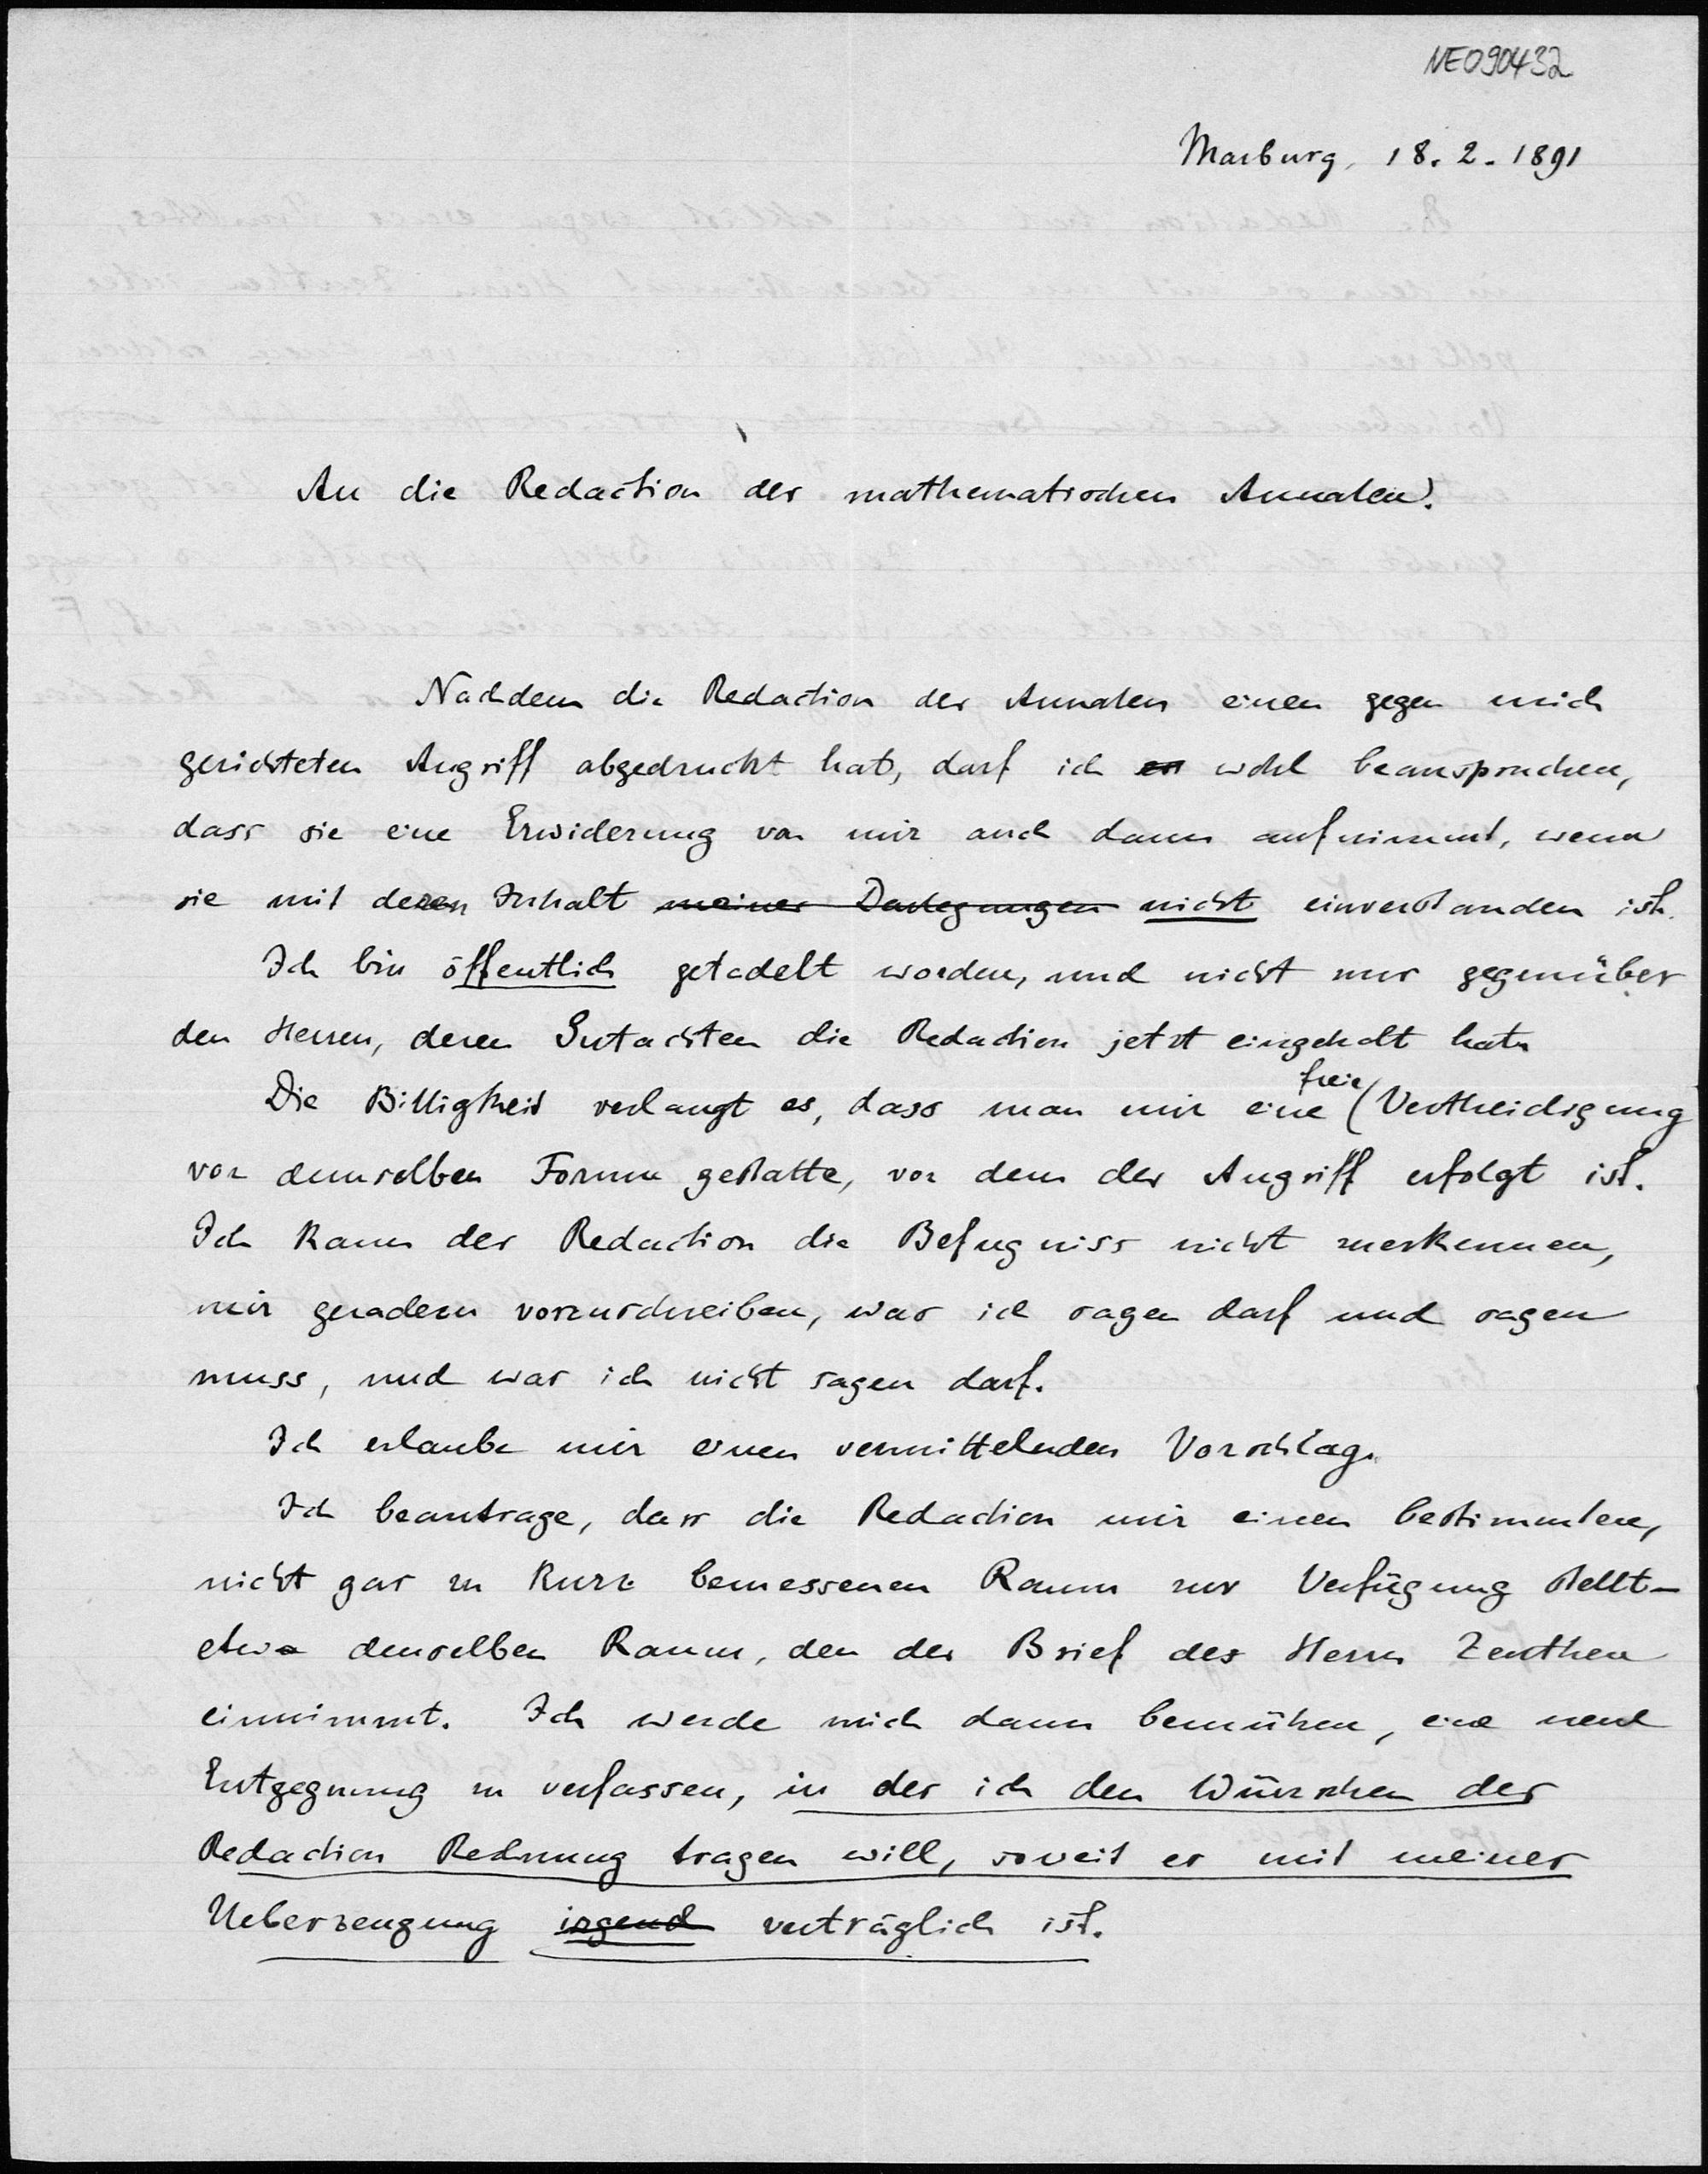 NE090432
Marburg, 18. 2. 1891
An die Redaction der mathematischen Annalen.
Nachdem die Redaction der Annalen einen gegen mich
gerichteten Angriff abgedruckt hat, darf ich es wohl beanspruchen,
dass sie eine Erwiderung von mir auch dann aufnimmt, wenn
sie mit deren Inhalt meiner Darlegungen nicht einverstanden ist.
Ich bin öffentlich getadelt worden, und nicht nur gegenüber
den Herren, deren Gutachten die Redaction jetzt eingeholt hat.
Die Billigkeit verlangt es, dass man mir eine freie Vertheidigung
vor demselben Forum gestatte, vor dem der Angriff erfolgt ist.
Ich kann der Redaction die Befugniss nicht zuerkennen,
mir geradezu vorzuschreiben, was ich sagen darf und sagen
muss, und was ich nicht sagen darf.
Ich erlaube mir einen vermittelnden Vorschlag.
Ich beantrage, dass die Redaction mir einen bestimmten,
nicht gar zu kurz bemessenen Raum zur Verfügung stellt –
etwa denselben Raum, den der Brief des Herrn Zeuthen
einnimmt. Ich werde mich dann bemühen, eine neue
Entgegnung zu verfassen, in der ich den Wünschen der
Redaction Rechnung tragen will, soweit es mit meiner
Ueberzeugung irgend verträglich ist.